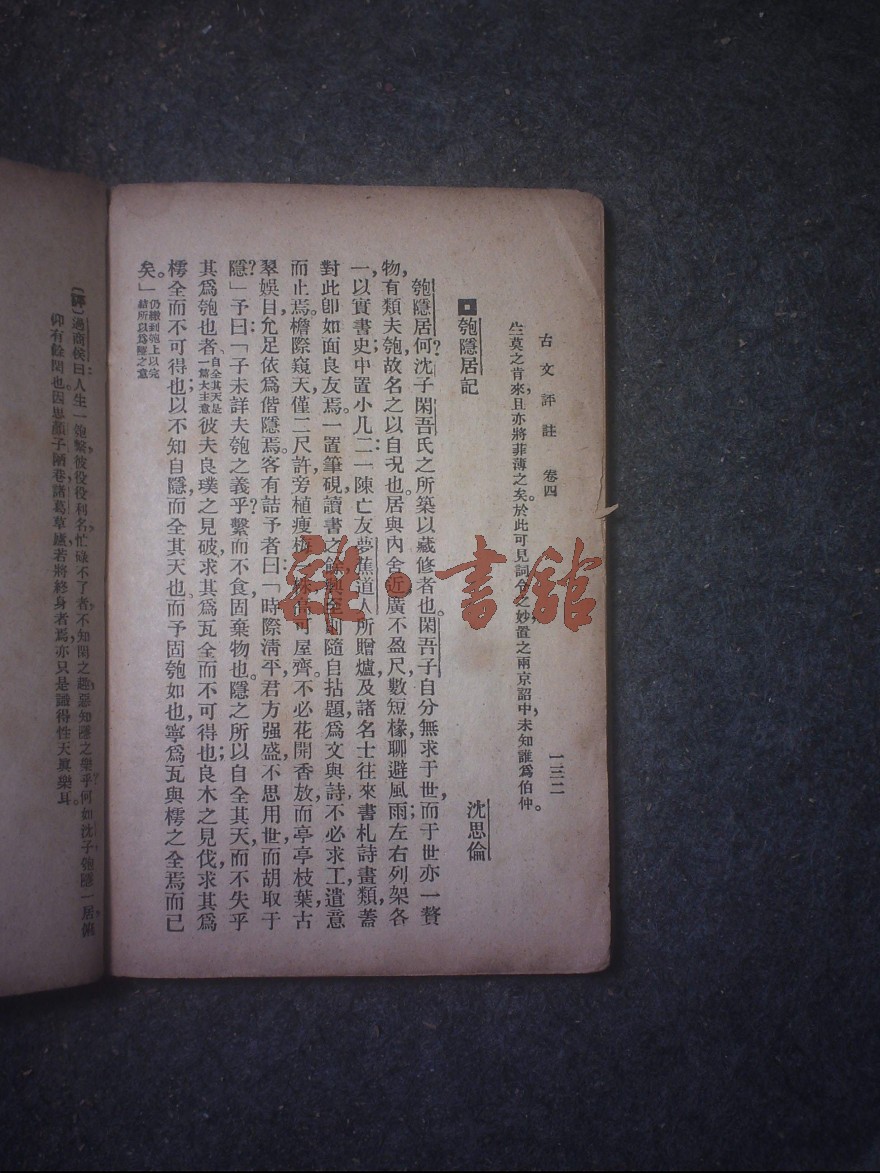 古文評註 卷四 一三二
生莫之肯來，且亦將菲薄之矣。於此可見詞令之妙，置之兩京詔中，未知誰爲伯仲。
匏隱居記 沈思倫
匏隱居何？沈子閑吾氏之所築以藏修者也。閑吾子自分無求于世，而于世亦一贅
物，有類夫匏，故名之以自況也。居與內舍近，廣不盈尺，數短椽聊避風雨，左右列架各
一，以實書史；中置小几二：一陳亡友夢蕉道人所贈爐及諸名士往來書札詩畫類，蓋
對此卽如面良友焉。一置筆硯，讀書之餘，興至則隨自拈題，爲文與詩，不必求工，遣意
而止焉。檐際窺天，僅二尺許，旁植瘦梅一株，高可屋齊，不必花開香放，而亭亭枝葉，古
翠娛目，允足依爲偕隱焉。客有詰予者曰：「時際淸平，君方强盛，不思用世，而胡取于
隱？」予曰：「子未詳夫匏之義乎？繫而不食，固棄物也。隱之所以自全其天，而不失乎
其爲匏也者，自全其天是一篇大主意彼夫良璞之見破，求其爲瓦全而不可得也；良木之見伐，求其爲
樗全而不可得也；以不知自隱，而全其天也。而予固匏如也，寧爲瓦與樗之全焉而已
矣。」仍繳到匏上以完結所以爲隱之意
〔評〕過商侯曰：人生一匏繫，彼役役利名，忙碌不了者，不知閑之趣，惡知隱之樂乎？何如沈子匏隱一居，俯
仰有餘閑也。因思顏子陋巷，諸葛草廬，若將終身者焉，亦只是識得性天眞樂耳。
雜·書舘